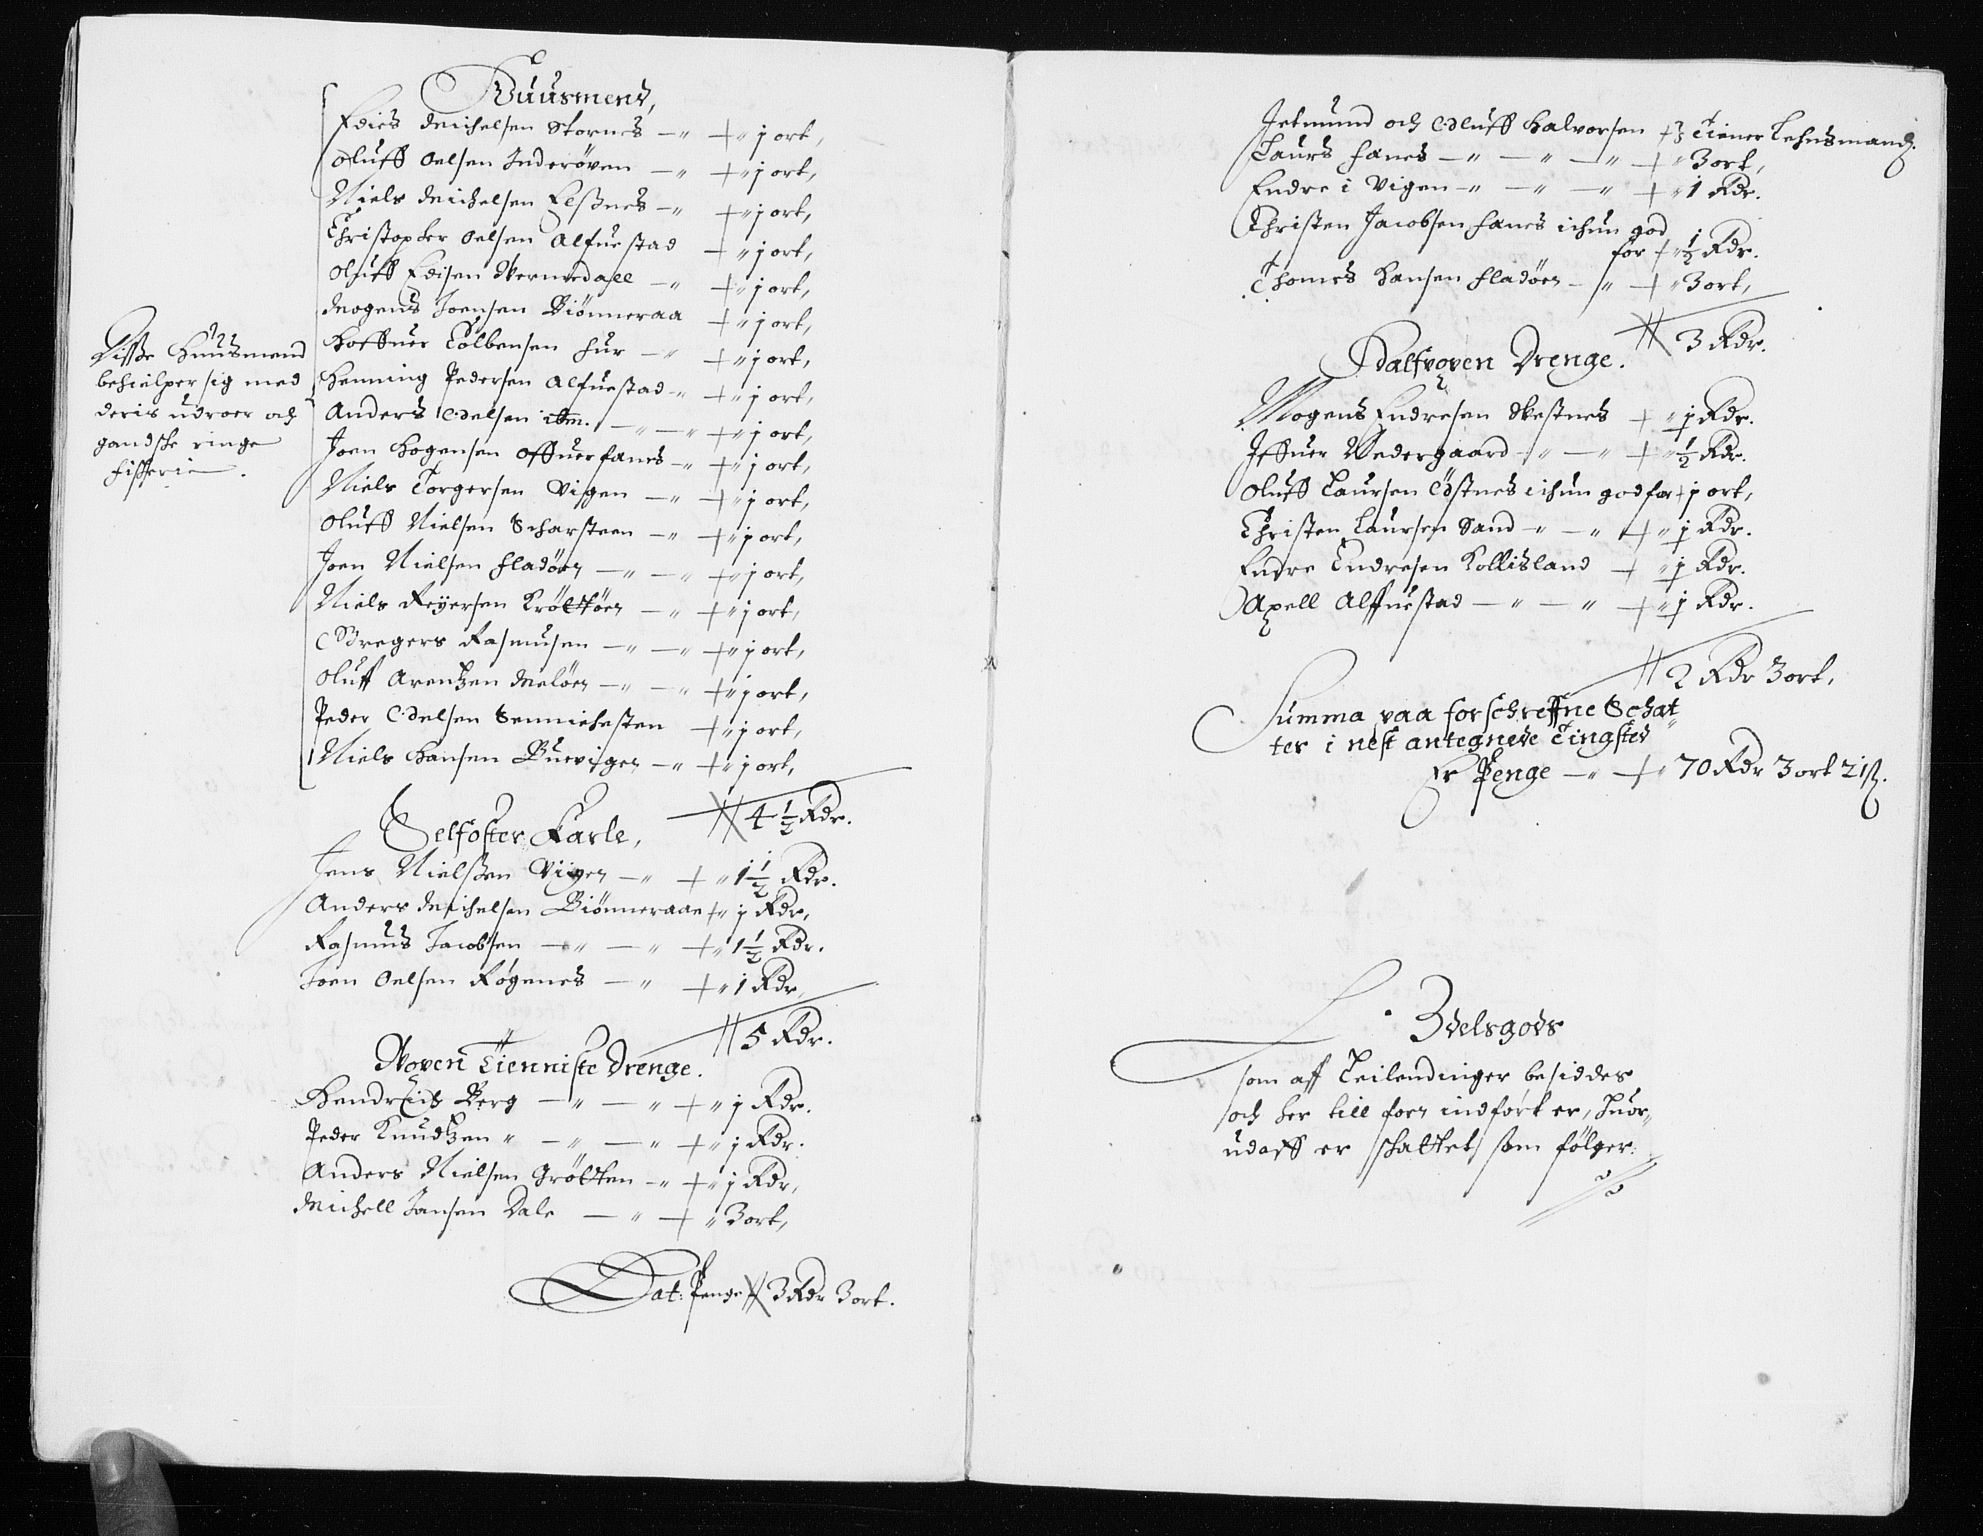 Huusmend,
Edies Michelsen Stornes — 1 ort,
Oluff Oelsen Inderöven — 1 ort,
Niels Michelsen Elßnes — 1 ort,
Christopher Oelsen Alfuestad 1 ort,
Oluff Edisen Mermedall — 1 ort,
Mogens Joensen Biönneraa 1 ort,
Hoffuer Tolbensen Fur — 1 ort,
Henning Pedersen Alfuestad 1 ort,
Anders Odelsen ibm. — 1 ort,
Joen Hogensen Offuerfanes 1 ort,
Niels Torgersen Vigen — 1 ort,
Oluff Nielsen Scharsteen — 1 ort,
Joen Nielsen Fladöen — 1 ort,
Niels Reyersen Kröttöen — 1 ort,
Gregers Rasmusen — 1 ort,
Oluff Arentzen Melöen — 1 ort,
Peder Odelsen Sennichesten 1 ort,
Niels Hansen Buevigen — 1 ort,
Disße Huusmend
behielper sig med
deris udroer och
gandsche ringe
Fißkerie.
4 1/2 Rdr.
Selfoster Karle,
Jens Nielßen Viigen — 1 1/2 Rdr.
Anders Michelsen Biönneraae 1 Rdr,
Rasmus Jacobsen — 1 1/2 Rdr.
Joen Oelsen Røgenes — 1 Rdr
5 Rdr.
Voxen Tienniste Drenge.
Hendrich Berg — 1 Rdr.
Peder Knudtzen — 1 Rdr.
Anders Nielsen Gröttken 1 Rdr,
Michell Jansen Dale — 3 ort,
Lat: Penge 3 Rdr 3 ort.
Jetmund och Oluff Halvorsen tiener Lehnsmand.
Laurs Fanes — 3 ort,
Endre i Vigen — 1 Rdr.
Christen Jacobsen Fanes ichun god
for 1/2 Rdr.
Thomes Hansen Fladöen — 3 ort,
3 Rdr.
Halfvoxen Drenge.
Mogens Endresen Mestnes 1 Rdr.
Iffuer Nedergaard — 1/2 Rdr.
Oluff Laursen Östnes ichun god for 1 ort,
Christen Laursen Sand — 1 Rdr.
Endre Endresen Kollisland 1 Rdr.
Axell Alffuestad — 1 Rdr.
2 Rdr 3 ort.
Summa paa forschreffne Schat
ter i nest antegnede Tingsted
Er Penge — 70 Rdr 3 ort 21 ß.
Odelsgods
som aff Leilendinger besiddes
och her till foren indført er, huor,,
udaff er schattet som følger: